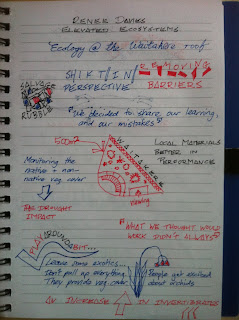 RENEE DAVIES
ELEVATED ECOSYSTEMS
Ecology @ the Waitakere roof
SHIFT IN
PERSPECTIVE
REMOVING
BARRIERS
SALVAGE
RUBBLE
"We decided to share our learning,
and our mistakes"
500m²
WAITAKERE
LOCAL MATERIALS
BETTER IN
PERFORMANCE
Monitoring the
native + non-
native veg cover
HAS DROUGHT
IMPACT
"WHAT WE THOUGHT WOULD
WORK DIDN'T ALWAYS"
PLAYGROUND
BIT...
Leave some exotics...
Don't pull up everything
They provide veg. cover
People get excited
about orchids
AN INCREASE IN INVERTEBRATES